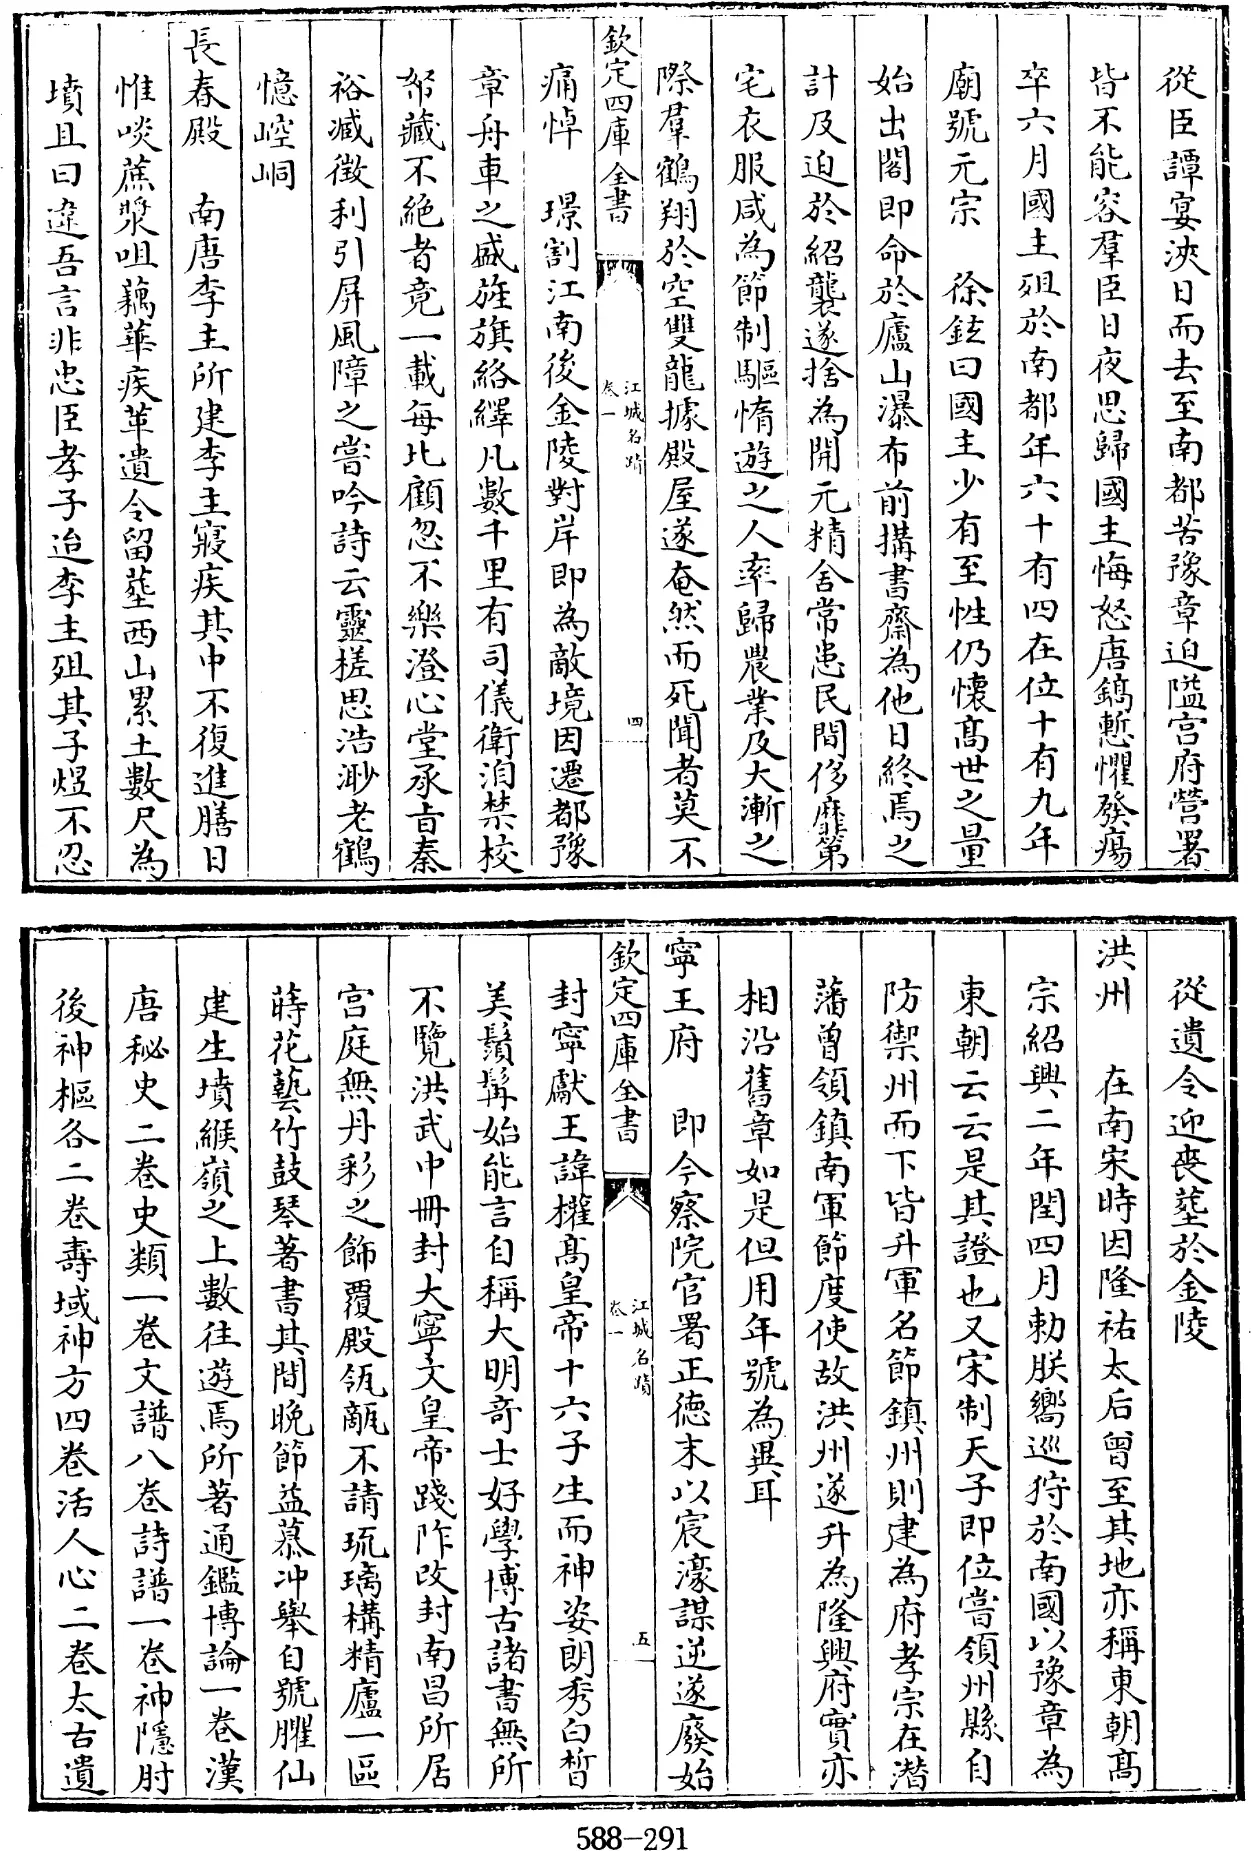 從臣譚宴浹日而去至南都苦豫章迫隘宫府營署
皆不能容羣臣日夜思歸國主悔怒唐鎬慙懼發瘍
卒六月國主殂於南都年六十有四在位十有九年
廟號元宗　徐鉉曰國主少有至性仍懷髙世之量
始出閣即命於廬山瀑布前搆書齋為他日終焉之
計及迫於紹襲遂捨為開元精舍常患民間侈靡第
宅衣服咸為節制驅惰遊之人率歸農業及大漸之
際羣鶴翔於空雙龍據殿屋遂奄然而死聞者莫不
欽定四庫全書
江城名蹟
卷一
四
痛悼　璟割江南後金陵對岸即為敵境因遷都豫
章舟車之盛旌旗絡繹凡數千里有司儀衛洎禁校
帑藏不絶者竟一載每北顧忽不樂澄心堂承旨秦
裕減徴利引屏風障之嘗吟詩云靈槎思浩渺老鶴
憶崆峒
長春殿　南唐李主所建李主寢疾其中不復進膳日
惟啖蔗漿咀藕華疾革遺令留塟西山累土數尺為
墳且曰違吾言非忠臣孝子迨李主殂其子煜不忍
從遺令迎喪塟於金陵
洪州　在南宋時因隆祐太后曾至其地亦稱東朝髙
宗紹興二年閏四月勅朕嚮巡狩於南國以豫章為
東朝云云是其證也又宋制天子即位嘗領州縣自
防禦州而下皆升軍名節鎮州則建為府孝宗在潛
藩曾領鎮南軍節度使故洪州遂升為隆興府實亦
相沿舊章如是但用年號為異耳
寧王府　即今察院官署正德末以宸濠謀逆遂廢始
欽定四庫全書
江城名蹟
卷一
五
封寧獻王諱權髙皇帝十六子生而神姿朗秀白晳
美鬚髯始能言自稱大明竒士好學博古諸書無所
不覽洪武中冊封大寧文皇帝踐阼改封南昌所居
宫庭無丹彩之飾覆殿瓴甋不請琉璃構精廬一區
蒔花藝竹鼓琴著書其間晚節益慕冲舉自號臞仙
建生墳緱嶺之上數往遊焉所著通鑑博論一卷漢
唐秘史二卷史類一卷文譜八卷詩譜一卷神隠肘
後神樞各二卷壽域神方四卷活人心二卷太古遺
588-291